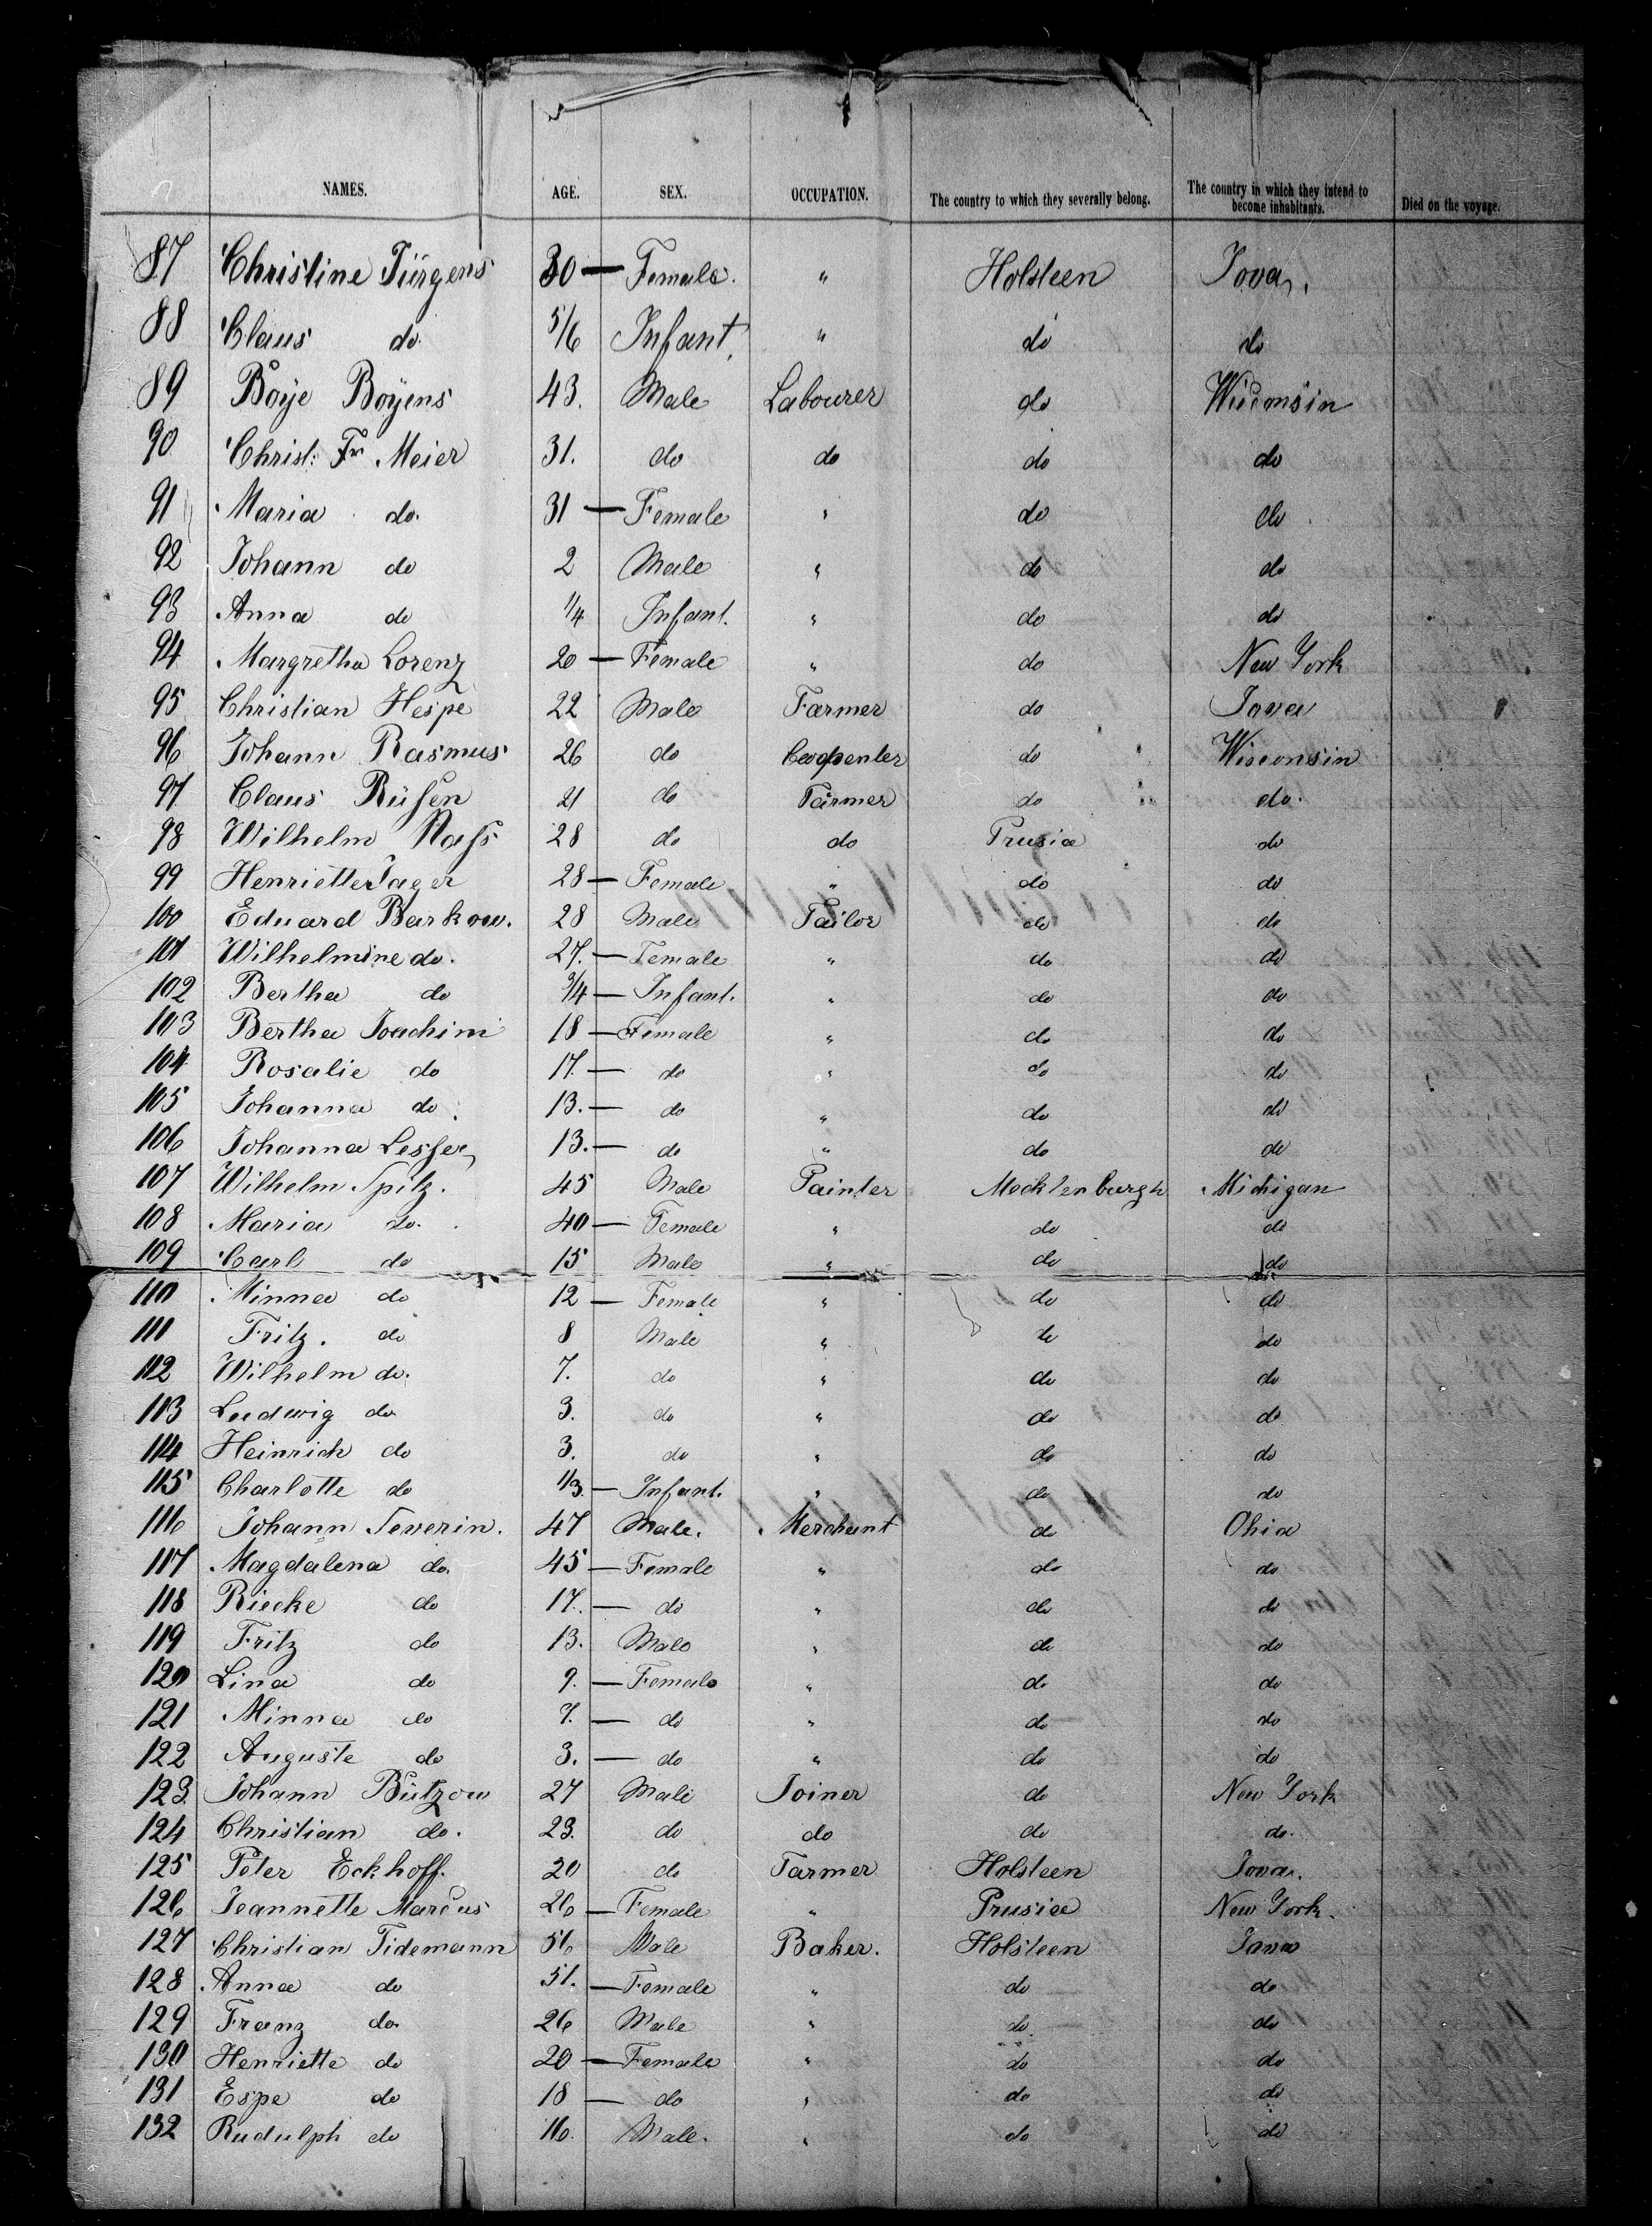 NAMES. AGE. SEX. OCCUPATION. The country to which they severally belong. The country in which they intend to become inhabitants. Died on the voyage.
87 Christine Jürgens 30 — Female. " Holsteen Iova.
88 Claus do. 5/6 Infant, " do do
89 Boye Boÿens 43. Male Labourer do Wisconsin
90 Christ: Fr Meier 31. do do do do
91 Maria do. 31 — Female " do do
92 Johann do 2 Male " do do
93 Anna do 1/4 Infant. " do do
94 Margretha Lorenz 20 — Female " do New York
95 Christian Hespe 22 Male Farmer do Iova
96 Johann Rasmus 26 do do Wisconsin
97 Claus Rüssen 21 do Farmer do do.
98 Wilhelm Nass 28 do do Prusia do
99 Henriette Jager 28 — Female " do do
100 Eduard Barkow. 28 Male Tailor do do
101 Wilhelmine do. 27. — Female " do do
102 Bertha do 3/4 — Infant. " do do
103 Bertha Joachim 18 — Female " do do
104 Rosalie do 17. — do " do do
105 Johanna do 13. — do " do do
106 Johanna Lesser 13. — do " do do
107 Wilhelm Spitz. 45 Male Painter Mecklenburgh Michigan
108 Maria do. 40 — Female " do do
109 Carl do 15 Male " do do
110 Minna do 12 — Female " do do
111 Fritz. do 8 Male " do do
112 Wilhelm do. 7. do " do do
113 Ludwig do 3. do " do do
114 Heinrich do 3. do " do do
115 Charlotte do 1/3. — Infant. " do do
116 Johann Severin. 47 Male. Merchant do Ohio
117 Magdalena do. 45 — Female " do do
118 Riecke do 17. — do " do do
119 Fritz do 13. Male " do do
120 Lina do 9. — Female " do do
121 Minna do 7. — do " do do
122 Auguste do 3. — do " do do
123. Johann Bützow 27 Male Joiner do New York
124 Christian do. 23. do do do do.
125 Peter Eckhoff. 20 do Farmer Holsteen Iova.
126 Jeannette Marcus 26 — Female " Prusia New York.
127 Christian Tidemann 56 Male Baker. Holsteen Iova
128 Anna do 51. — Female " do do
129 Franz do. 26 Male " do. do
130 Henriette do 20 — Female " do do
131 Espe do 18 — do " do do
132 Rudulph do 16. Male. " do do